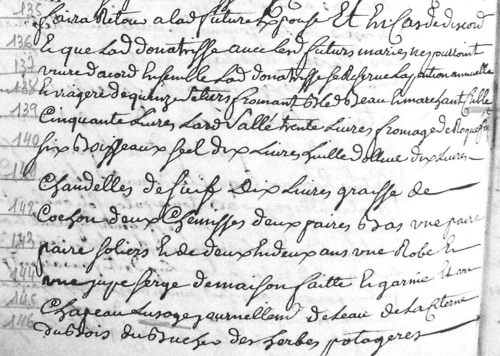 135 faira Retour a lad future Expouse Et En Cas de discord
136 En que Lad donatrisse avec lesd futurs maries ne pourroint
137 vivre dacord Ensemble Lad donatrisse se Reserve La pention annuelle
138 En viagere de quinze setiers fromant Bled Beau En marchant huille
139 Cinquante Livres Lard sallé trente Livres fromage de Roquefort
140 six Boisseaux sel dix Livres huille dollive dix Livres
141 Chandelles de suif Dix Livres graisse de
142 Cochon deux Chemisses deux paires Bas une paire
143 paire soliers En de deux En deux ans une Robe En
144 une jupe serge de maison faitte En garnie En un
145 Chapeau Lusage journellemt de Leau de La Citerne
146 du Bois du Bucher des herbes potageres